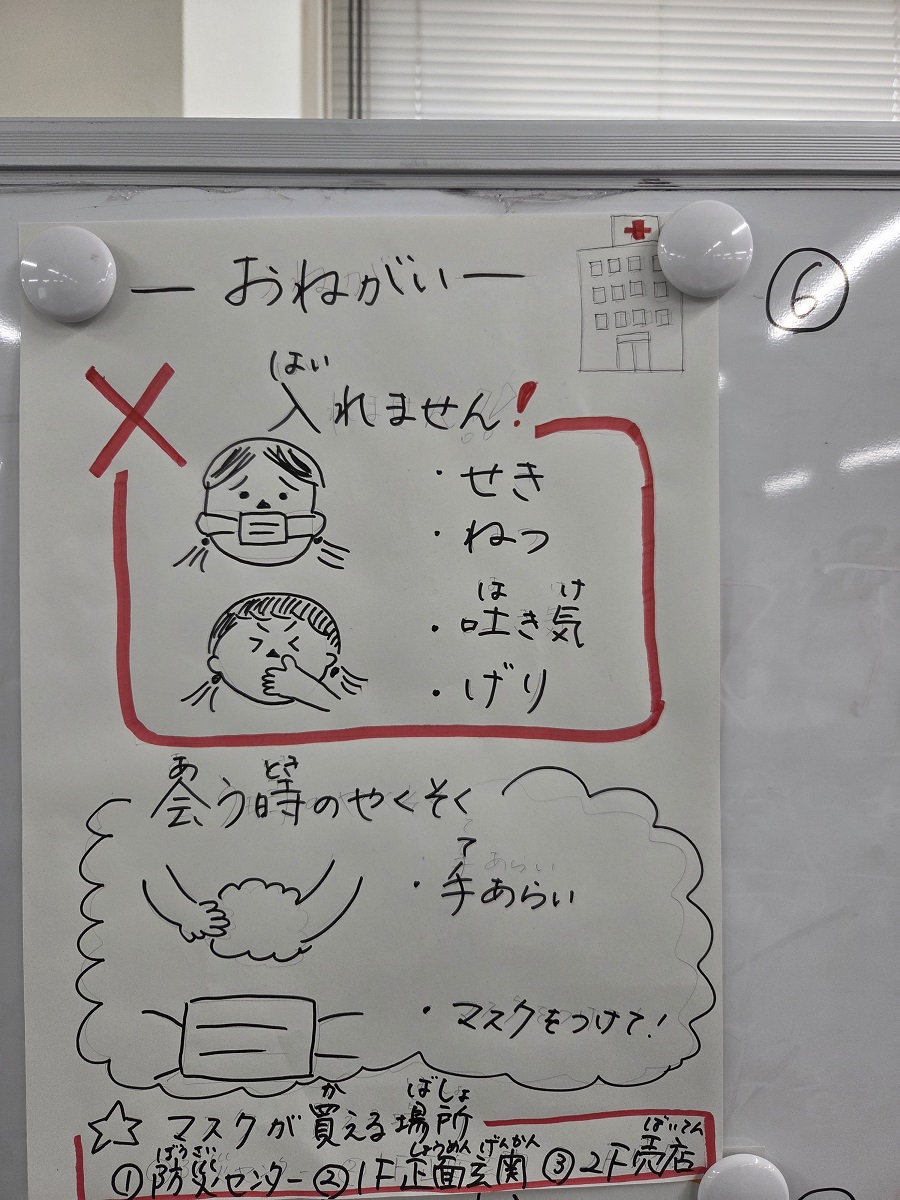 ― おねがい ―
⑥
はい
入れません!
・せき
・ねつ
は け
・吐き気
・げり
あ とき
会う時のやくそく
て
・手あらい
・マスクをつけて!
か ばしょ
☆ マスクが買える場所
ぼうさい しょうめん げんかん ばいてん
①防災センター ②1F正面玄関 ③2F売店